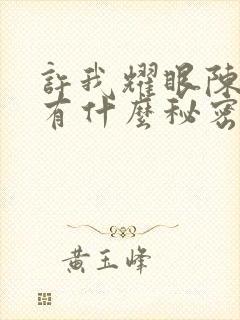 許我耀眼陳
有什麼秘密
黃玉峰